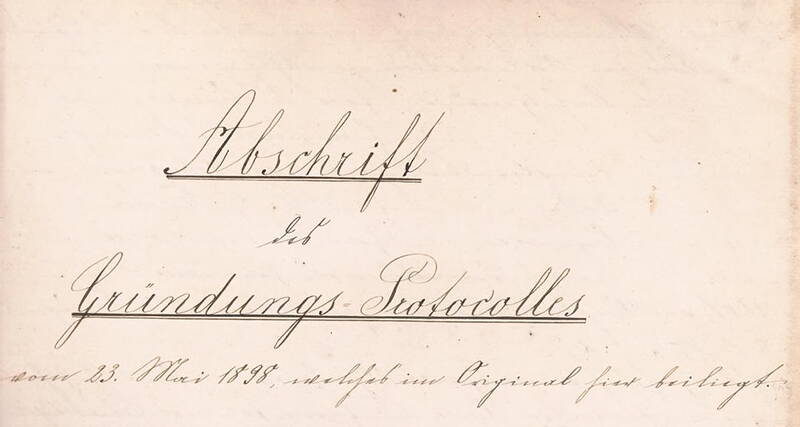 Abschrift
des
Gründungs-Protocolles
vom 23. Mai 1898, welches im Original hier beiliegt.